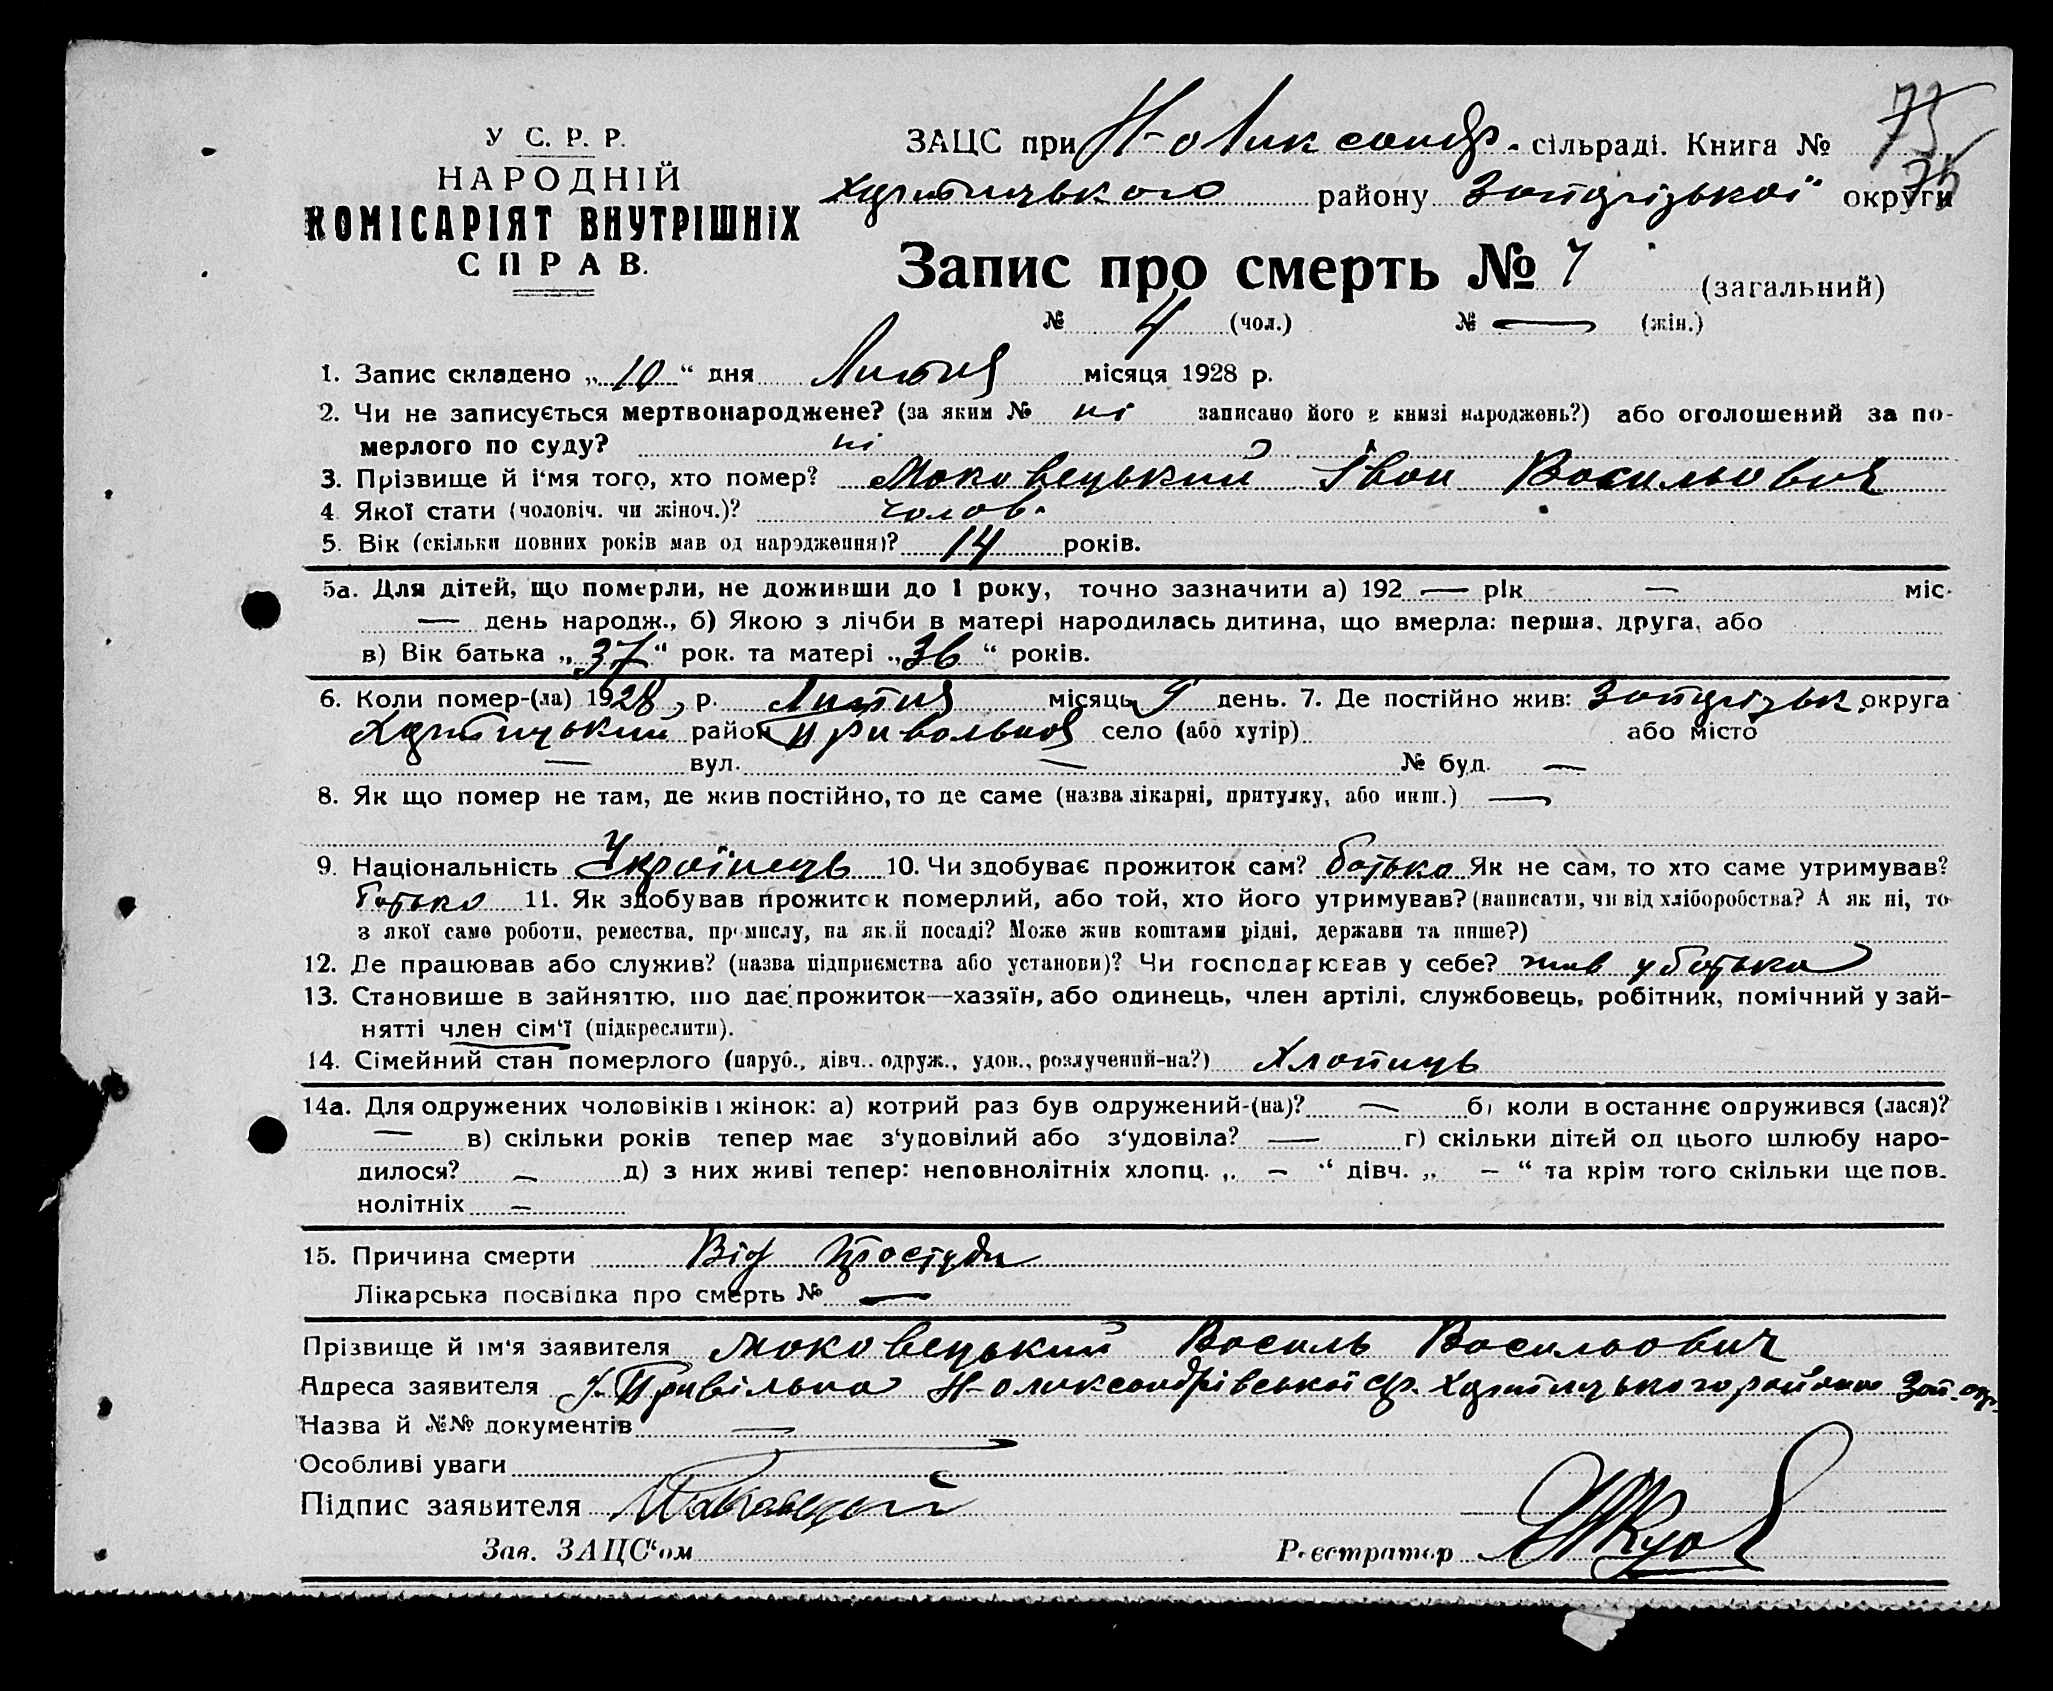 У С. Р. Р.
НАРОДНІЙ
КОМІСАРІЯТ ВНУТРІШНІХ
СПРАВ.
ЗАЦС при Н-Олександр. сільраді. Книга № 75
Хортицького району Запорізької округи
Запис про смерть № 7 (загальний)
№ 4 (чол.) № — (жін.)
1. Запис складено „10“ дня Липня місяця 1928 р.
2. Чи не записується мертвонароджене? (за яким № ні записано його в книзі народжень?) або оголошений за по-
мерлого по суду? ні
3. Прізвище й і‘мя того, хто помер? Маковецький Іван Васильович
4. Якої стати (чоловіч. чи жіноч.)? чолов.
5. Вік (скільки повних років мав од народження)? 14 років.
5а. Для дітей, що померли, не доживши до 1 року, точно зазначити а) 192 — рік — міс.
— день народж., б) Якою з лічби в матері народилась дитина, що вмерла: перша, друга, або
в) Вік батька „37“ рок. та матері „36“ років.
6. Коли помер-(ла) 1928, р. Липня місяць 9 день. 7. Де постійно жив: Запорізьк. округа
Хортицький район Привольная село (або хутір) або місто
— вул. — № буд. —
8. Як що помер не там, де жив постійно, то де саме (назва лікарні, притулку, або инш.) —
9. Національність Українець 10. Чи здобуває прожиток сам? батько Як не сам, то хто саме утримував?
батько 11. Як здобував прожиток померлий, або той, хто його утримував? (написати, чи від хліборобства? А як ні, то
з якої саме роботи, ремества, промислу, на якій посаді? Може жив коштами рідні, держави та инше?)
12. Де працював або служив? (назва підприємства або установи)? Чи господарював у себе? жив у батька
13. Становише в зайняттю, що дає прожиток—хазяїн, або одинець, член артілі, службовець, робітник, помічний у зай-
нятті член сім‘ї (підкреслити).
14. Сімейний стан померлого (паруб., дівч.. одруж., удов., розлучений-на?) Хлопиць
14а. Для одружених чоловіків і жінок: а) котрий раз був одружений-(на)? — б) коли в останнє одружився (лася)?
— в) скільки років тепер має з‘удовілий або з‘удовіла? — г) скільки дітей од цього шлюбу наро-
дилося? — д) з них живі тепер: неповнолітніх хлопц. „ — “ дівч. „ — “ та крім того скільки ще пов.
нолітніх —
15. Причина смерти Від простуди
Лікарська посвідка про смерть № —
Прізвище й ім‘я заявителя Маковецький Василь Васильович
Адреса заявителя с. Привільна Н-Олександрівської с/р. Хортицького району Зап. окр.
Назва й №№ документів —
Особливі уваги
Підпис заявителя Маковецкий
Зав. ЗАЦС‘ом Реєстратор